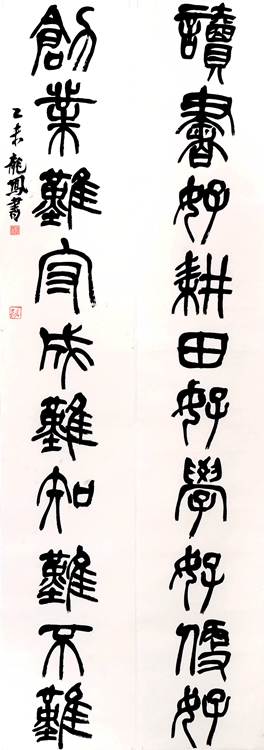 讀書好耕田好學好便好
創業難守成難知難不難
乙未龍鳳書